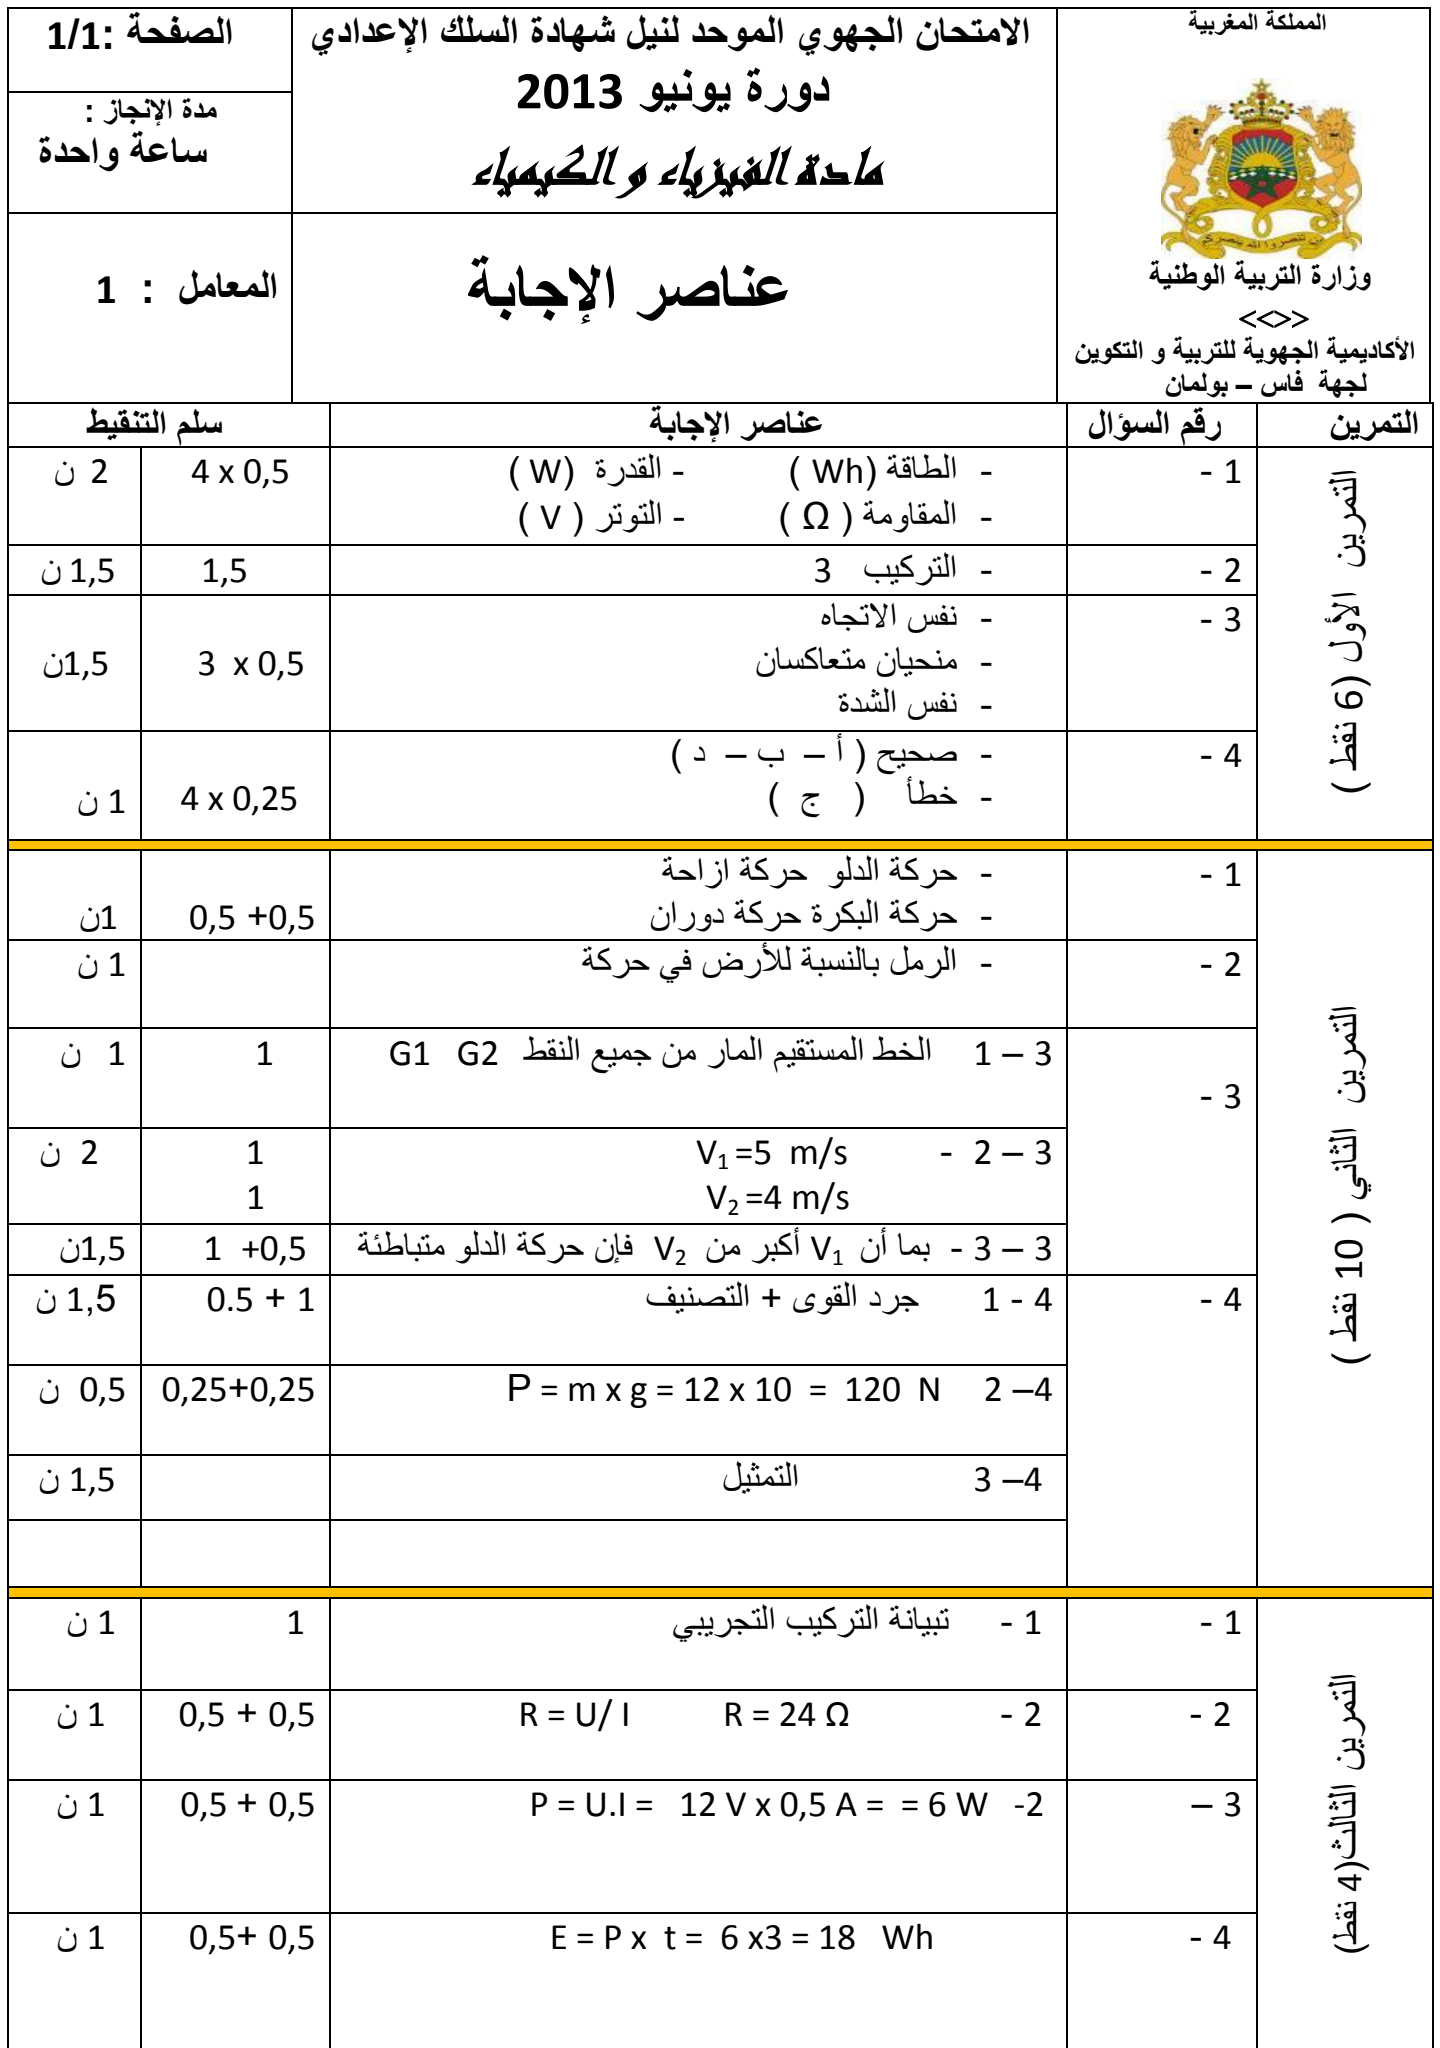 المملكة المغربية
وزارة التربية الوطنية
<<<>>
الأكاديمية الجهوية للتربية و التكوين
لجهة فاس – بولمان
الامتحان الجهوي الموحد لنيل شهادة السلك الإعدادي
دورة يونيو 2013
مادة الفيزياء و الكيمياء
الصفحة :1/1
مدة الإنجاز :
ساعة واحدة
عناصر الإجابة
المعامل : 1
التمرين رقم السؤال عناصر الإجابة سلم التنقيط
التمرين الأول (6 نقط )
1 - - الطاقة (Wh ) - القدرة (W ) 4 x 0,5 2 ن
- المقاومة ( Ω ) - التوتر ( V )
2 - - التركيب 3 1,5 1,5 ن
3 - - نفس الاتجاه
- منحيان متعاكسان 3 x 0,5 1,5ن
- نفس الشدة
4 - - صحيح ( أ – ب – د )
- خطأ ( ج ) 4 x 0,25 1 ن
التمرين الثاني ( 10 نقط )
1 - - حركة الدلو حركة ازاحة
- حركة البكرة حركة دوران 0,5 +0,5 1ن
2 - - الرمل بالنسبة للأرض في حركة 1 ن
3 – 1 الخط المستقيم المار من جميع النقط G1 G2 1 1 ن
3 -
3 – 2 - V1 =5 m/s 1 2 ن
V2 =4 m/s 1
3 – 3 - بما أن V1 أكبر من V2 فإن حركة الدلو متباطئة 1 +0,5 1,5ن
4 - 4 - 1 جرد القوى + التصنيف 0.5 + 1 1,5 ن
4– 2 P = m x g = 12 x 10 = 120 N 0,25+0,25 0,5 ن
4– 3 التمثيل 1,5 ن
التمرين الثالث(4 نقط)
1 - 1 - تبيانة التركيب التجريبي 1 1 ن
2 - 2 - R = U/ I R = 24 Ω 0,5 + 0,5 1 ن
3 – 2- P = U.I = 12 V x 0,5 A = = 6 W 0,5 + 0,5 1 ن
4 - E = P x t = 6 x3 = 18 Wh 0,5+ 0,5 1 ن